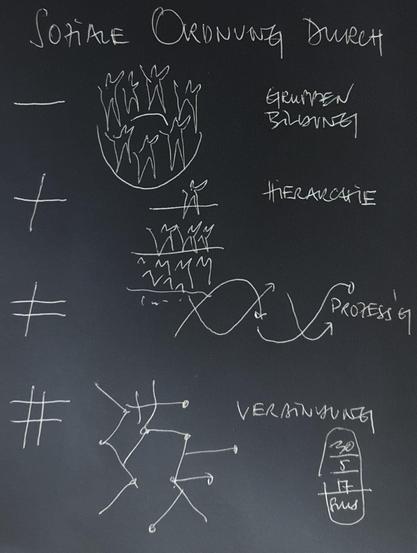 SOZIALE ORDNUNG DURCH
GRUPPEN
BILDUNG
HIERARCHIE
PROZESS
VERBINDUNG
30
5
17